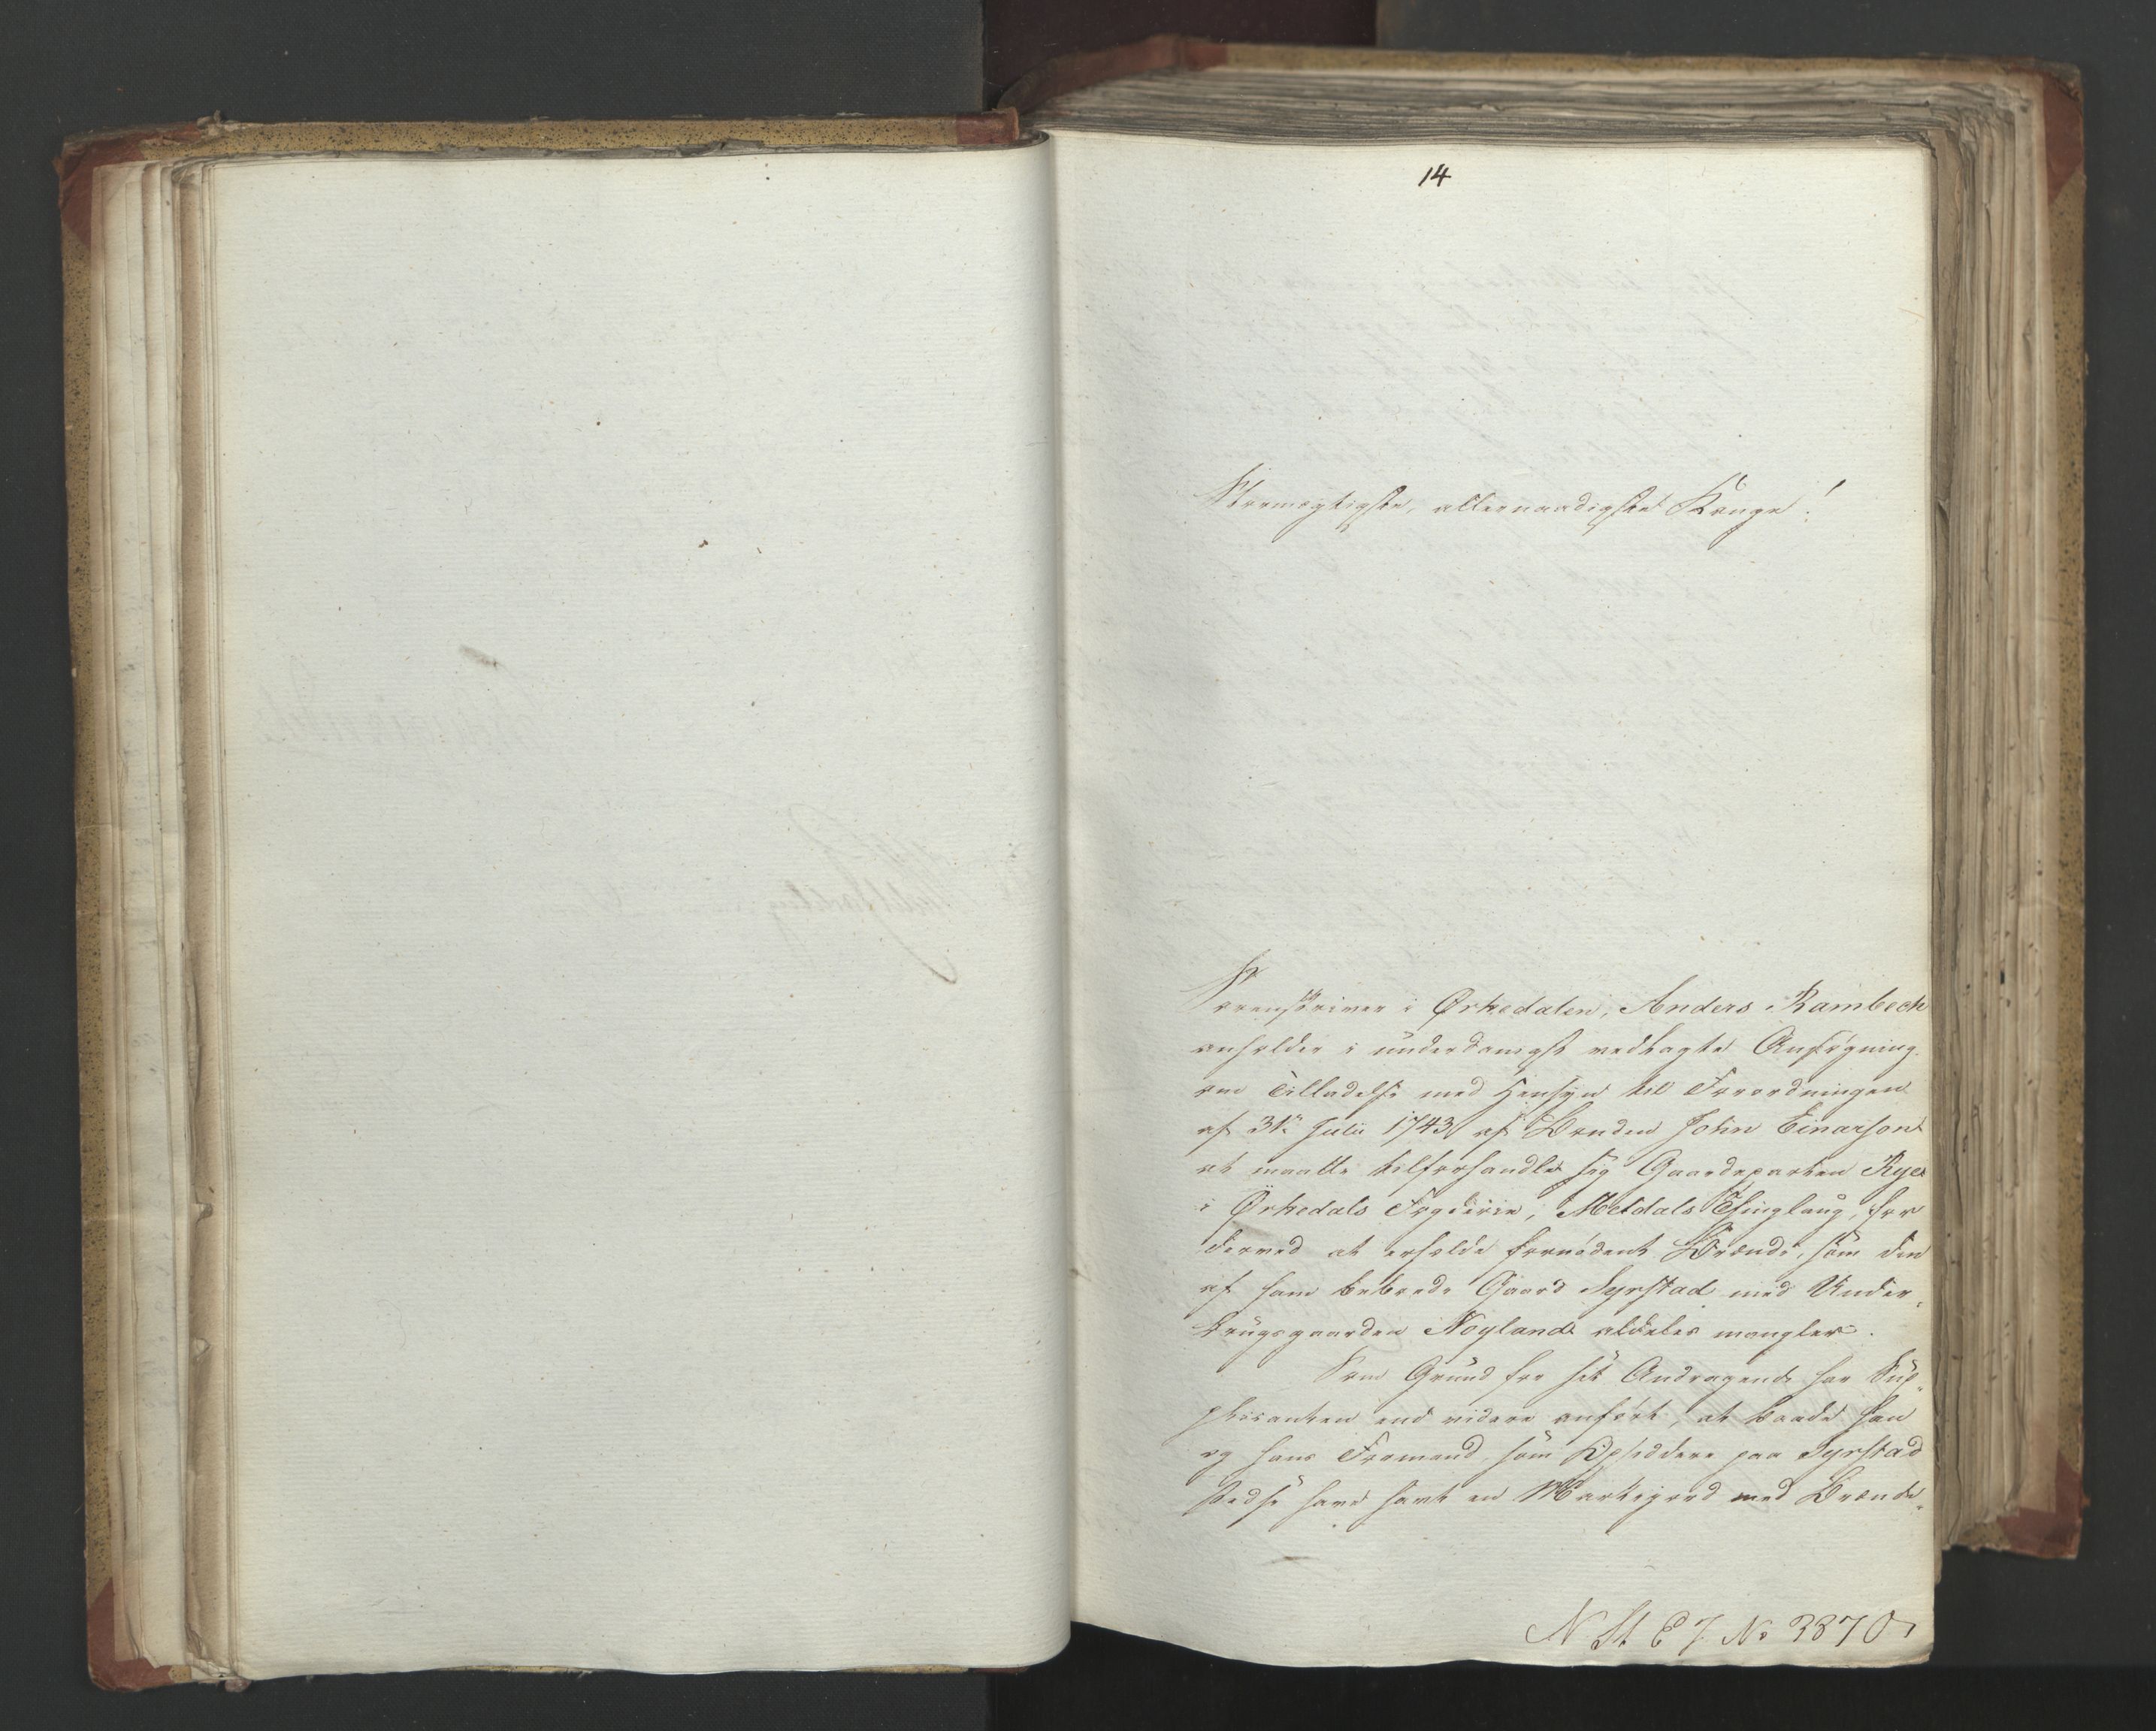 14
Stormægtigste, allernaadigste Konge!
Sorenskriver i Ørkedalen, Anders Rambech
anholder i underdanigst vedlagte Ansøgning
om Tilladelse med Hensyn til Forordningen
af 31te Julii 1743 af Bonden John Einarson
at maatte tilforhandle sig Gaardeparten Rye
i Ørkedals Fogderie, Meldals Thinglaug, for
derved at erholde fornødent Brænde, som den
af ham beboede Gaard Syrstad med Under-
brugsgaarden Nogland aldeles mangler.
Som Grund for sit Andragende har Sup-
plicanten end videre anført, at baade han
og hans Formænd som Opsiddere paa Syrstad
stedse have havt en Markejord med Brænde-
N St E J. No 3870